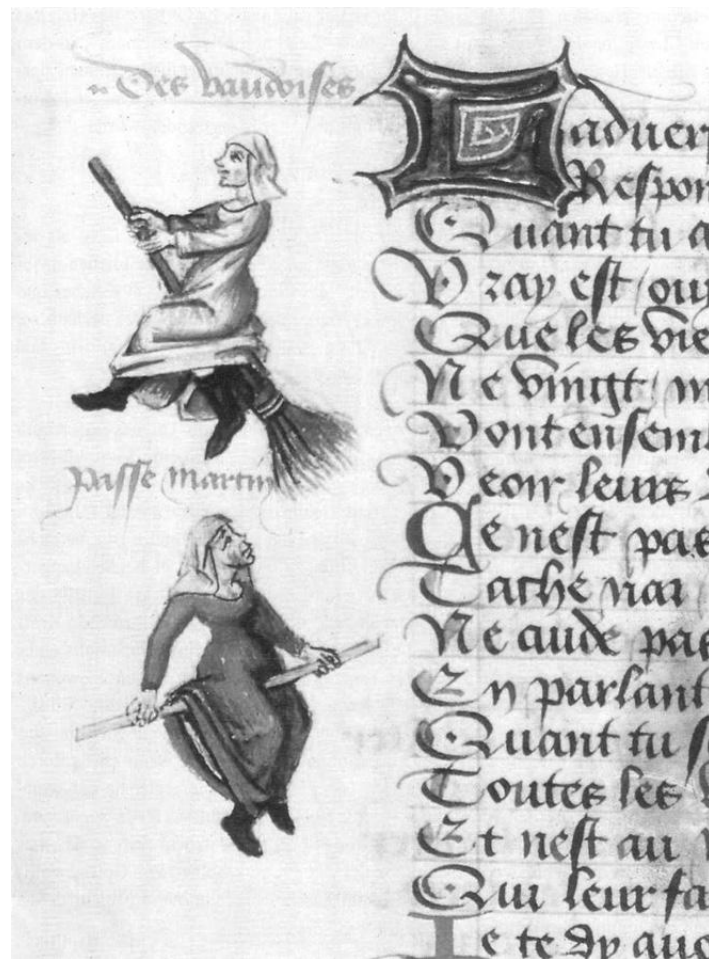 Des vaudoises
passe martin
Laduer
Respon
Quant tu a
Vray est ouy
Que les vie
Ne vingt m
Vont ensem
Veoir leurs
Ce nest pas
Tache nar
Ne cuide pas
En parlant
Quant tu s
Toutes les
Et nest au
Qui leur fa
Je te dy auc